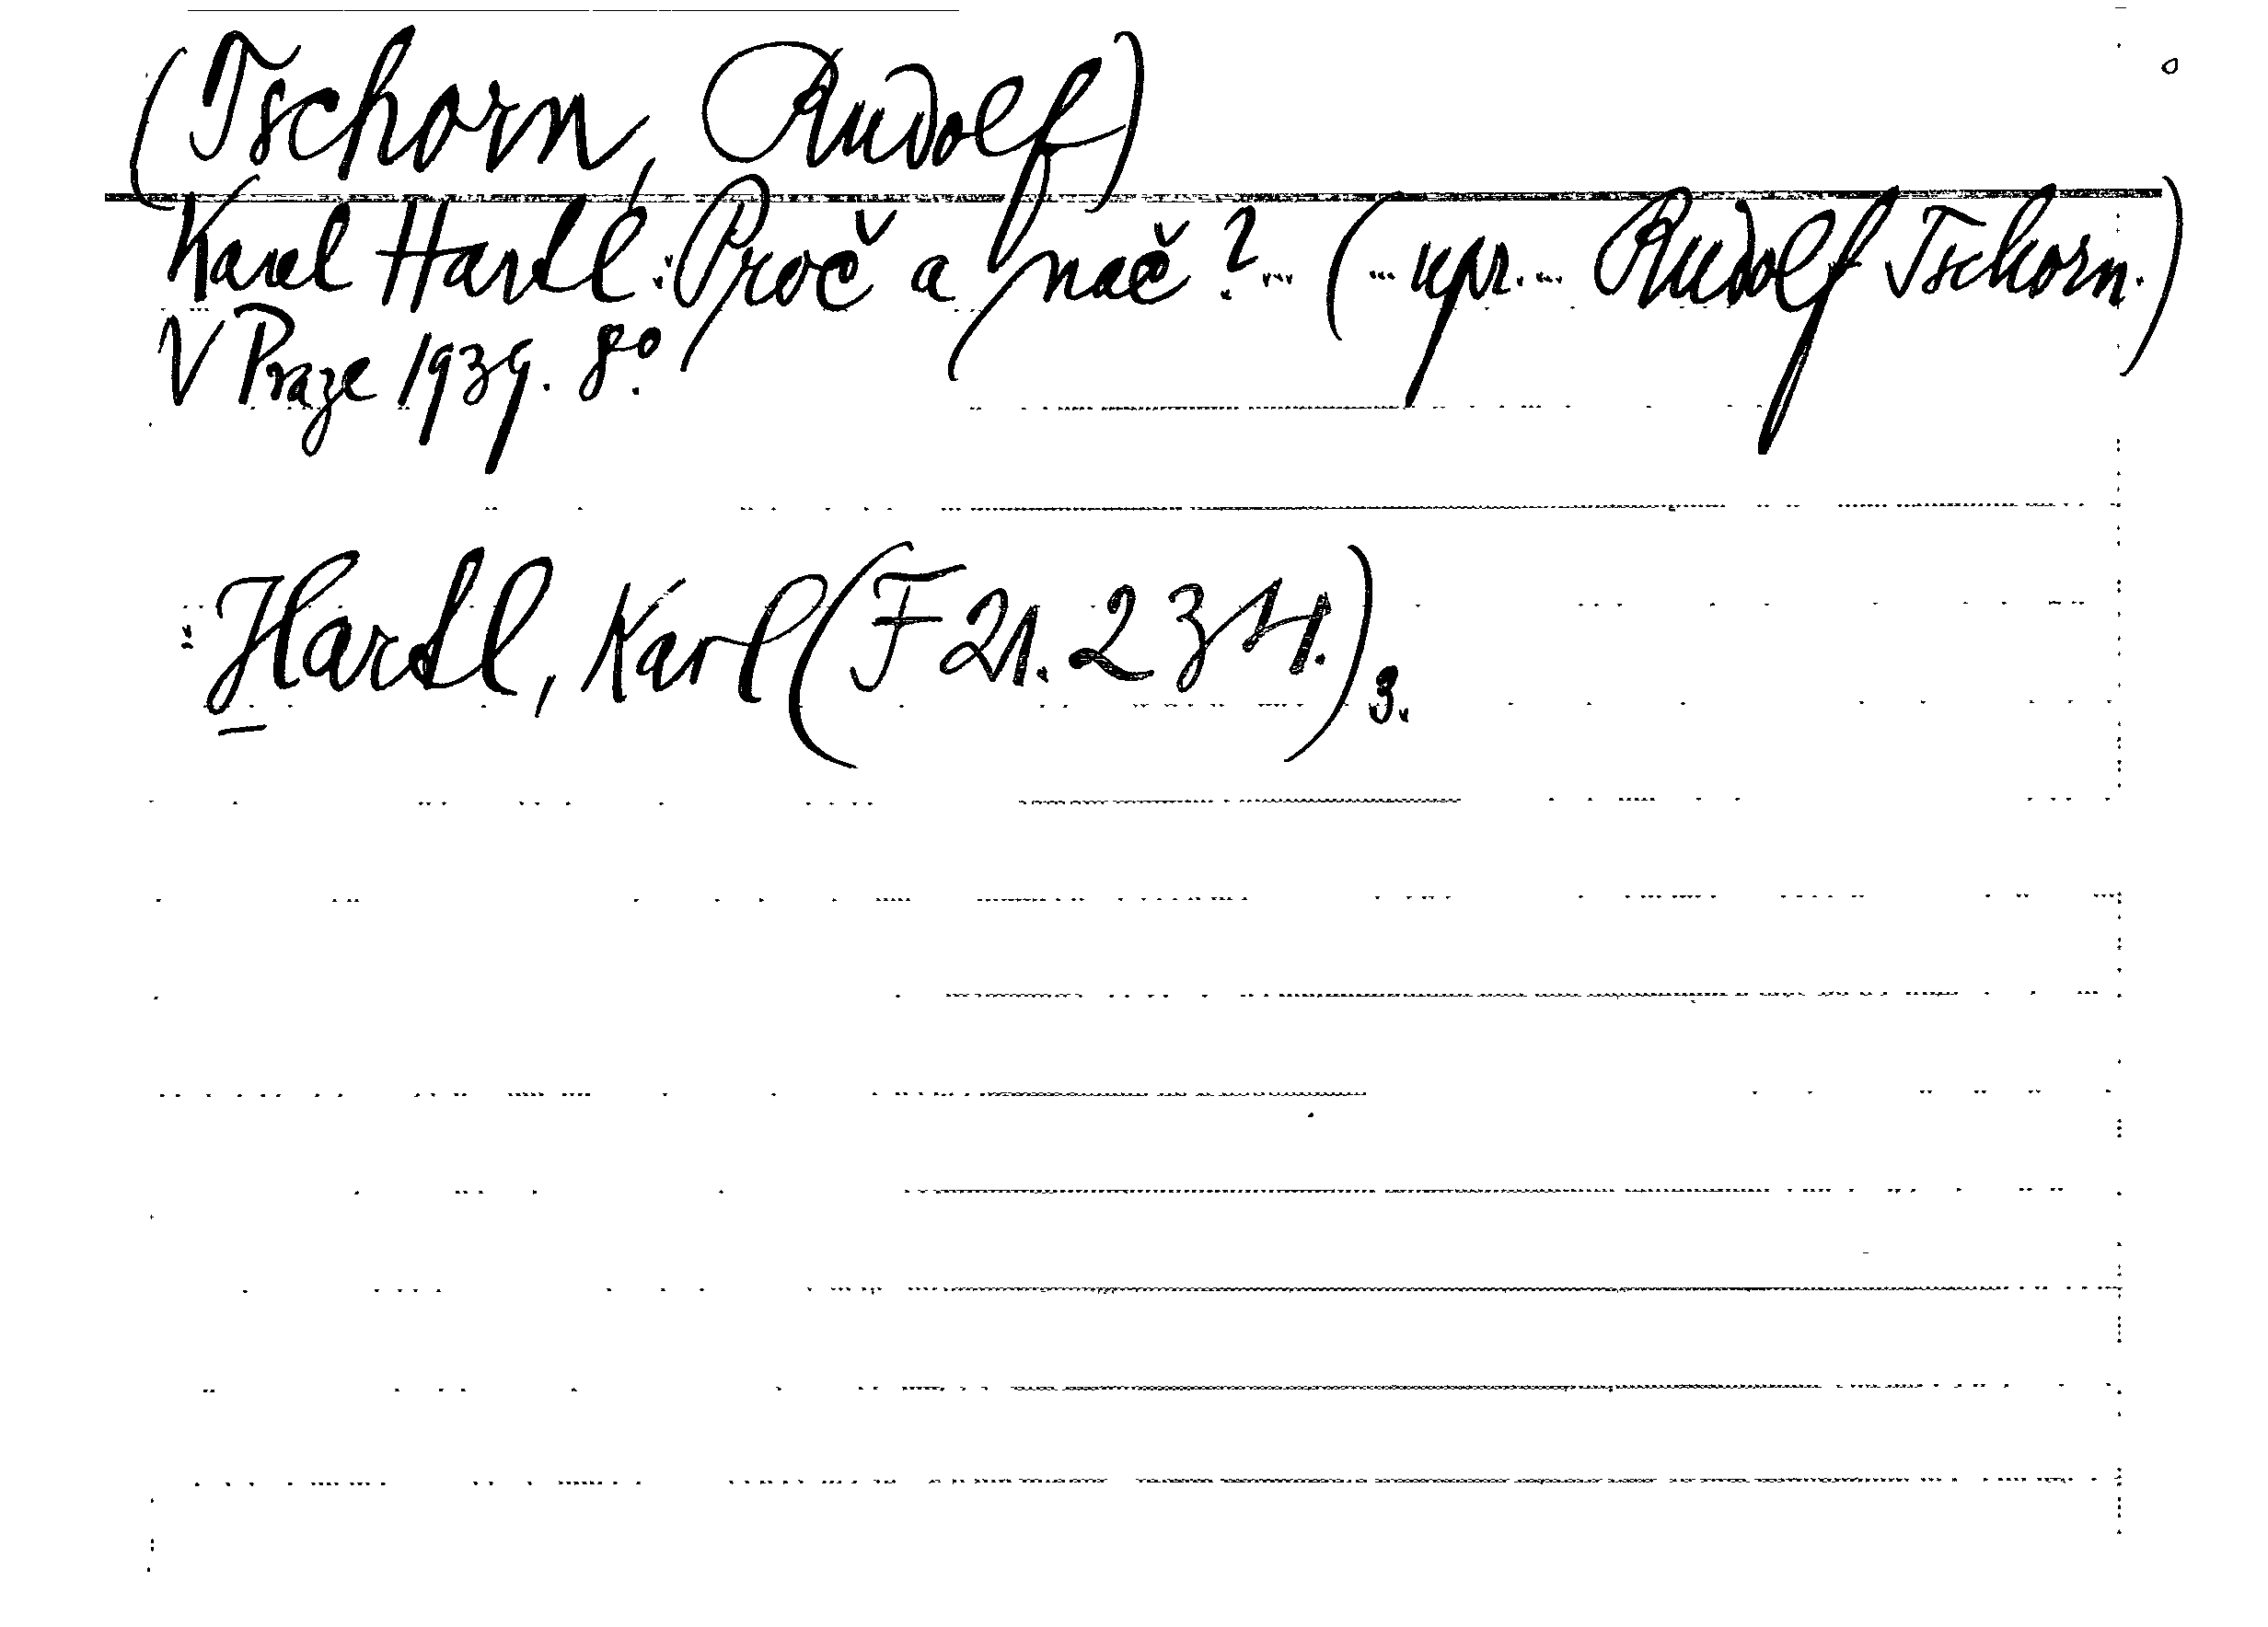 (Tschorn, Rudolf)
Karel Hartl: Proč a nač? ... (... upr. ... Rudolf Tschorn.)
V Praze 1939. 8°.
: Hartl, Karl (F 21.234.) 3.